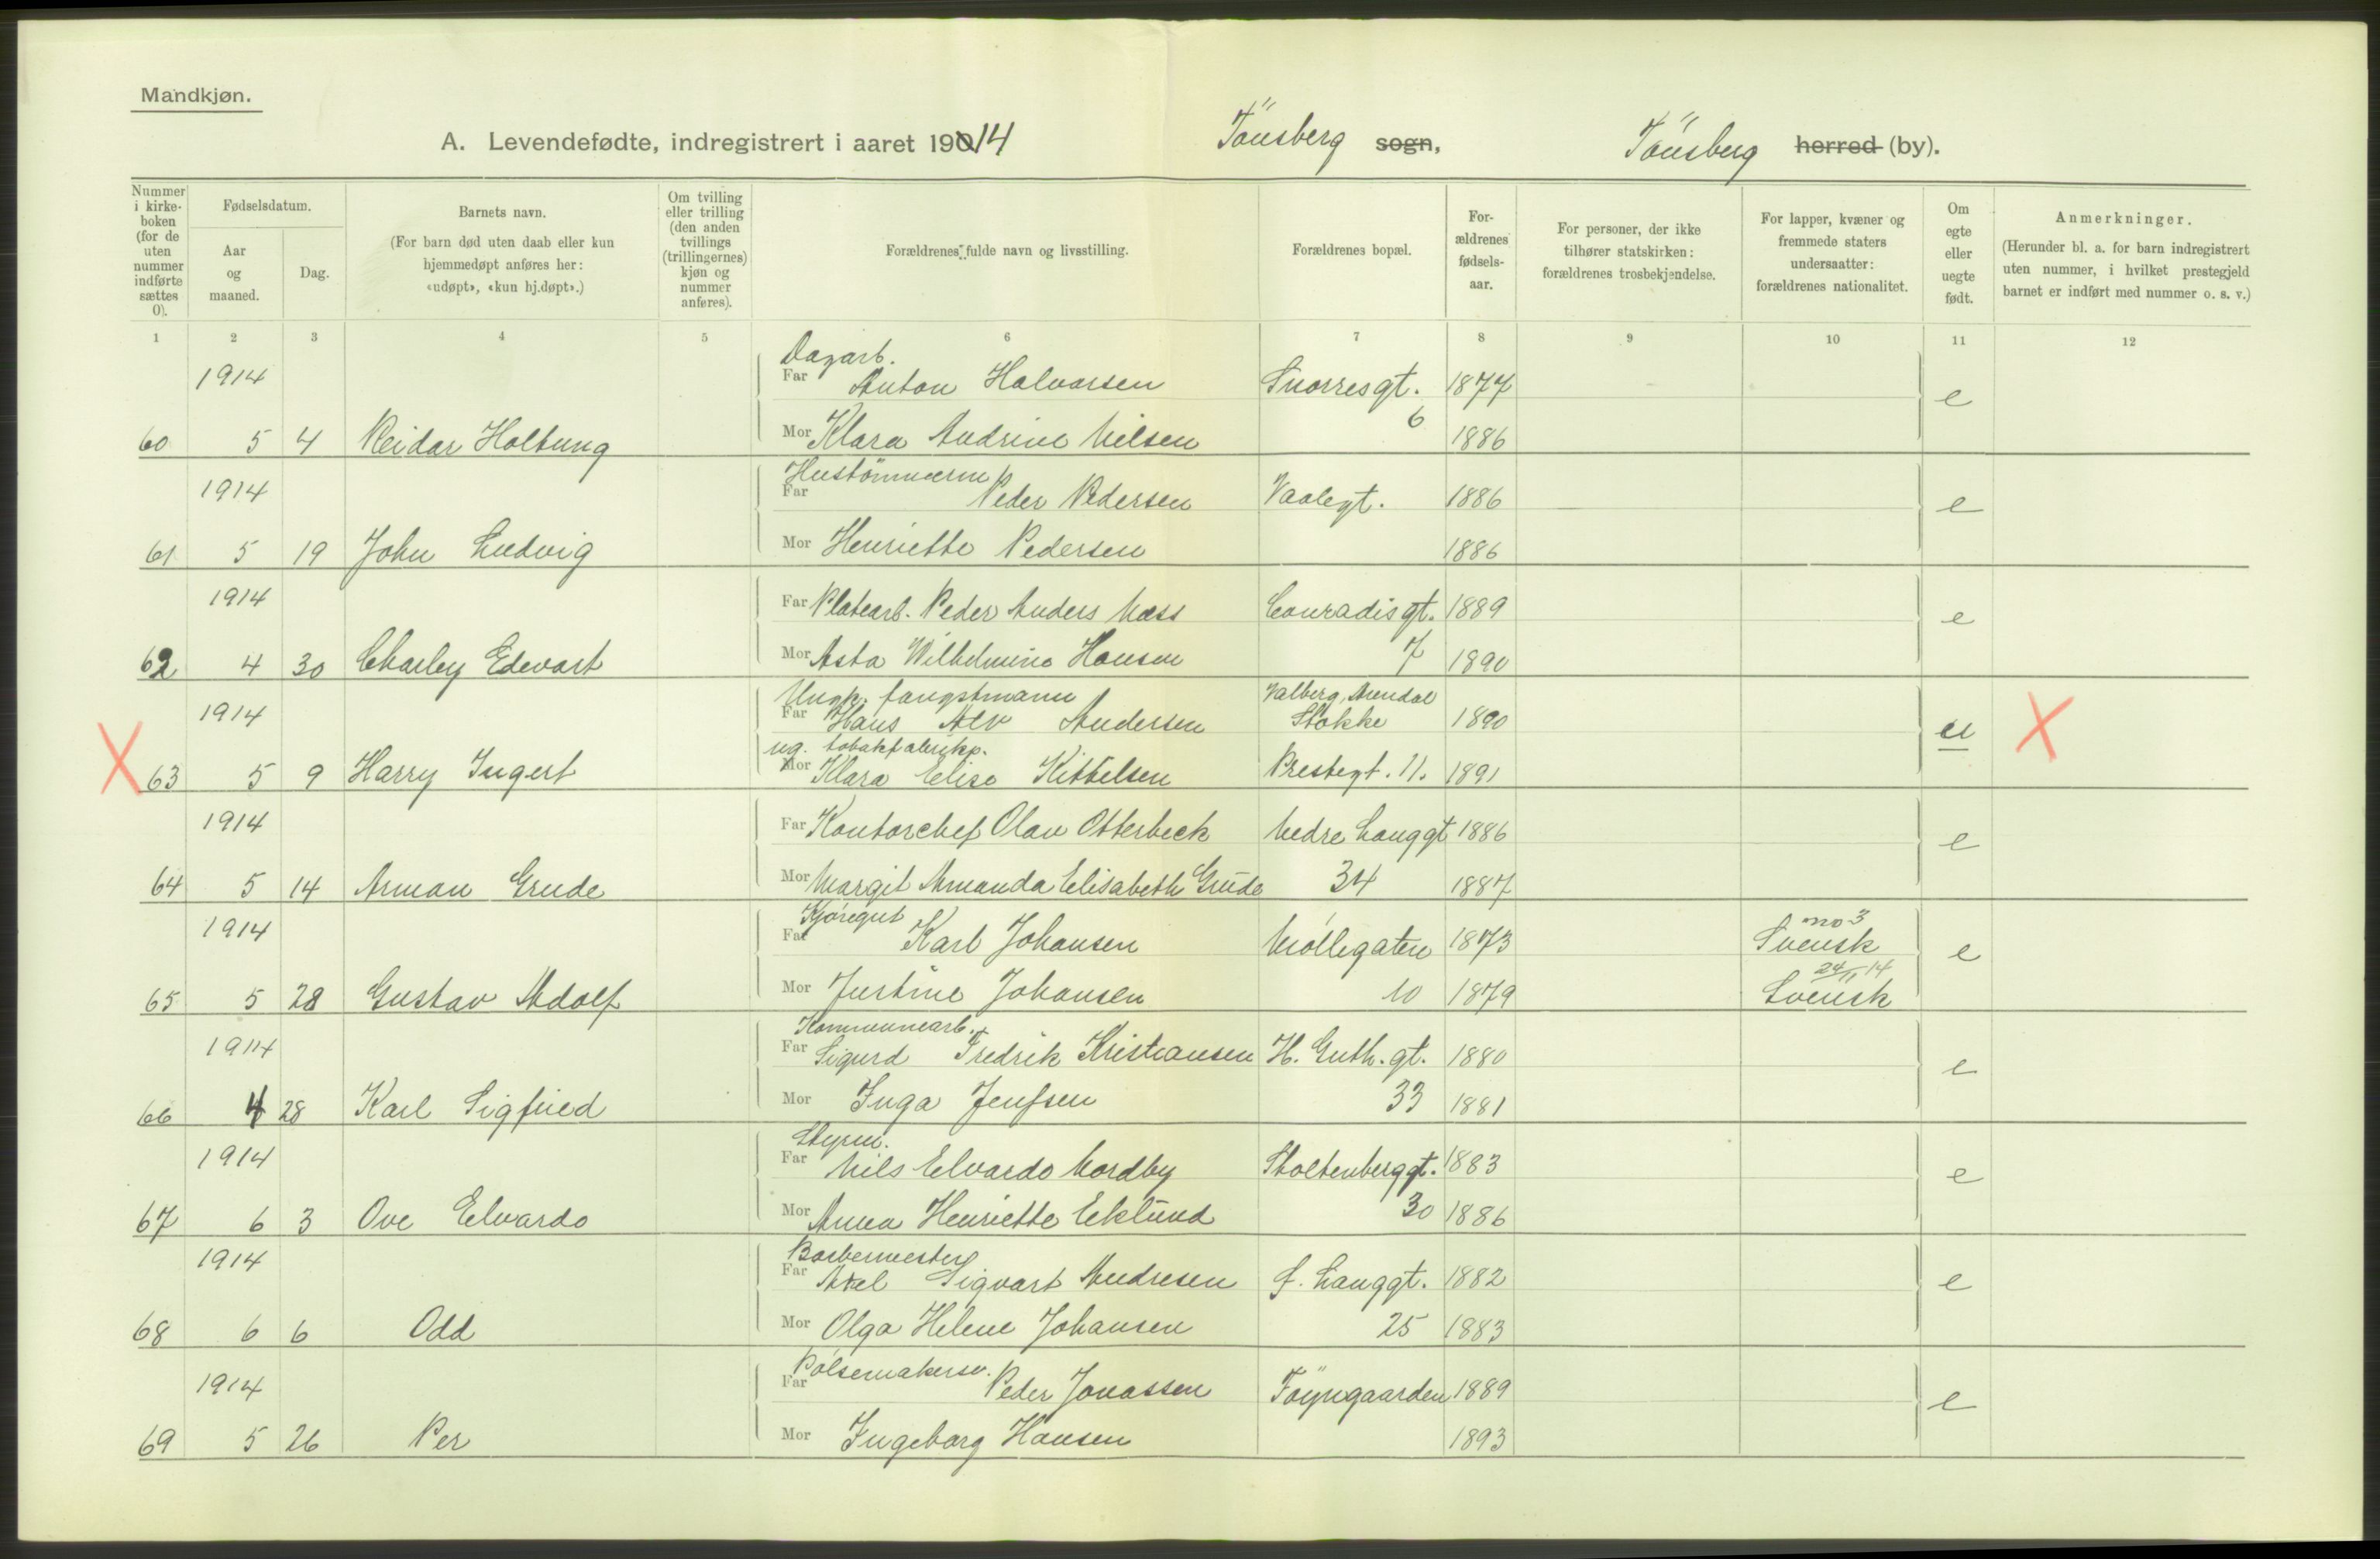 Mandkjøn.
A. Levendefødte, indregistrert i aaret 19014 Tönsberg sogn, Tönsberg herred (by).
Nummer i kirkeboken (for de uten nummer indførte sættes 0).
Fødselsdatum.
Aar og maaned.
Dag.
Barnets navn.
(For barn død uten daab eller kun hjemmedøpt anføres her: «udøpt», «kun hj.døpt».)
Om tvilling eller trilling (den anden tvillings (trillingernes) kjøn og nummer anføres).
Forældrenes fulde navn og livsstilling.
Forældrenes bopæl.
Forældrenes fødselsaar.
For personer, der ikke tilhører statskirken: forældrenes trosbekjendelse.
For lapper, kvæner og fremmede staters undersaatter: forældrenes nationalitet.
Om egte eller uegte født.
Anmerkninger.
(Herunder bl. a. for barn indregistrert uten nummer, i hvilket prestegjeld barnet er indført med nummer o. s. v.)
1 2 3 4 5 6 7 8 9 10 11 12
Dagarb.
1914 Far Anton Halvorsen Snorresgt. 1877 e
60 5 4 Reidar Holtung Mor Klara Andrine Nilsen 6 1886
Hustömmerm
1914 Far Peder Pedersen Vaalegt. 1886 e
61 5 19 John Ludvig Mor Henriette Pedersen 1886
1914 Far Platearb. Peder Anders Næss Conradisgt. 1889 e
62 4 30 Charley Edevart Mor Asta Wilhelmine Hansen 7 1890
Ungk. fangstmann Valberg, Arendal
1914 Far Hans Alv Andersen Stokke 1890 u
ug. tobakfabrikp.
X 63 5 9 Harry Ingert Mor Klara Elise Kittelsen Prestegt. 11. 1891 X
1914 Far Kontorchef Olav Otterbeck Nedre Langgt 1886 e
64 5 14 Arman Grude Mor Margit Amanda Elisabeth Grude 34 1887
Kjøregut no 3
1914 Far Karl Johansen Möllegaten 1873 Svensk e
24/11 14
65 5 28 Gustav Adolf Mor Justine Johansen 10 1879 Svensk
Kommunearb.
1914 Far Sigurd Fredrik Kristiansen H. Guth. gt. 1880 e
66 4 28 Karl Sigfried Mor Inga Jensen 33 1881
Styrm.
1914 Far Nils Elvardo Nordby Stoltenberggt. 1883 e
67 6 3 Ove Elvardo Mor Anna Henriette Eklund 30 1886
Barbermester
1914 Far Axel Sigvart Andresen S. Langgt. 1882 e
68 6 6 Odd Mor Olga Helene Johansen 25 1883
Pölsemakersv.
1914 Far Peder Jonassen Föyngaarden 1889 e
69 5 26 Per Mor Ingeborg Hansen 1893